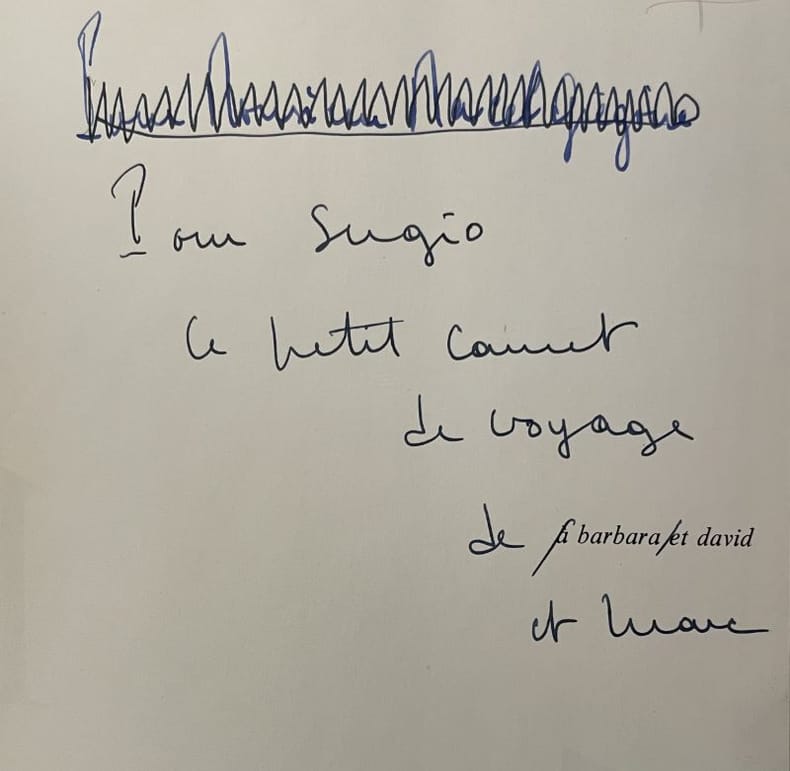 Pour Sergio
Ce petit carnet
de voyage
de à barbara et david
et Marc